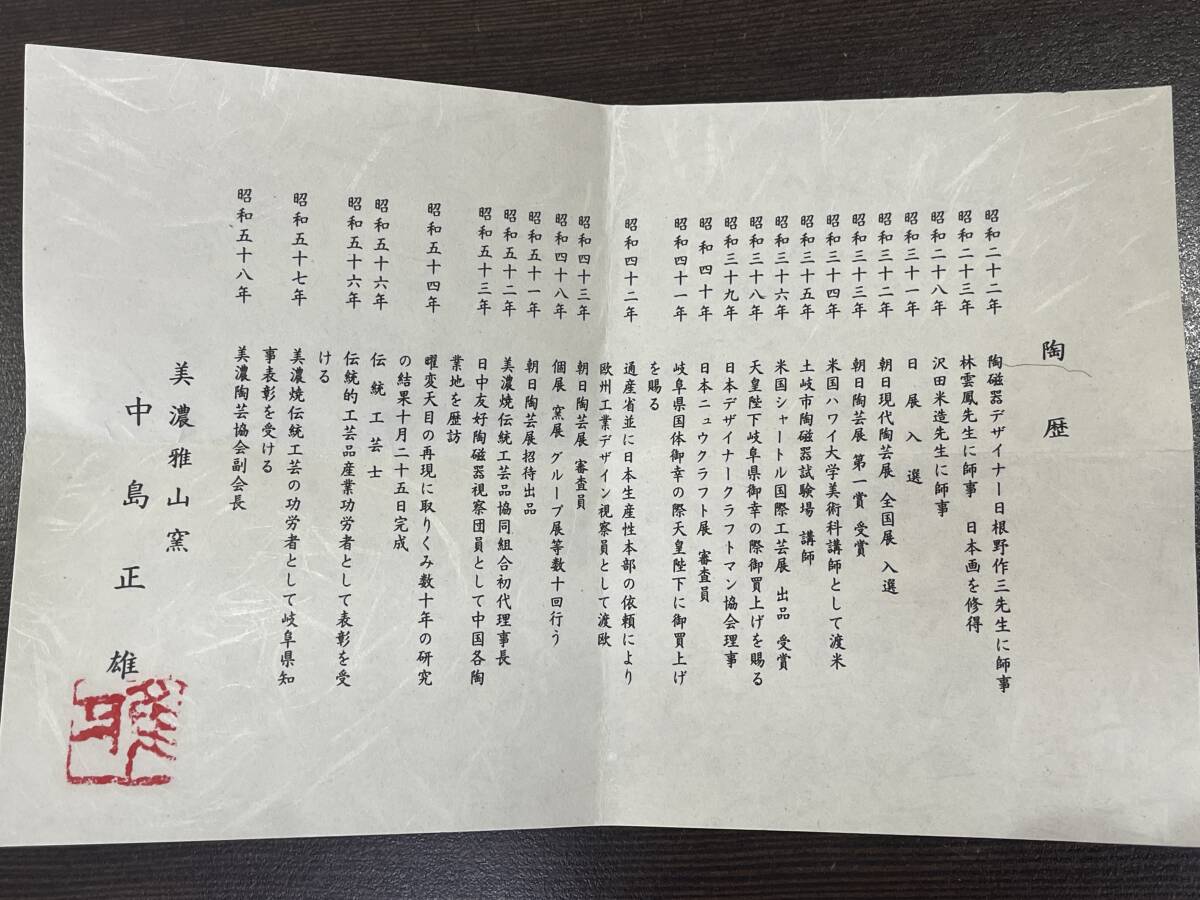 陶歴
昭和二十二年 陶磁器デザイナー日根野作三先生に師事
昭和二十三年 林雲鳳先生に師事 日本画を修得
昭和二十八年 沢田米造先生に師事
昭和三十一年 日展入選
昭和三十二年 朝日現代陶芸展 全国展 入選
昭和三十三年 朝日陶芸展 第一賞 受賞
昭和三十四年 米国ハワイ大学美術科講師として渡米
昭和三十五年 土岐市陶磁器試験場 講師
昭和三十六年 米国シャートル国際工芸展 出品 受賞
昭和三十八年 天皇陛下岐阜県御幸の際御買上げを賜る
昭和三十九年 日本デザイナークラフトマン協会理事
昭和四十年 日本ニュウクラフト展 審査員
昭和四十一年 岐阜県国体御幸の際天皇陛下に御買上げ
を賜る
昭和四十二年 通産省並に日本生産性本部の依頼により
欧州工業デザイン視察員として渡欧
昭和四十三年 朝日陶芸展 審査員
昭和四十八年 個展 窯展 グループ展等数十回行う
昭和五十一年 朝日陶芸展招待出品
昭和五十二年 美濃焼伝統工芸品協同組合初代理事長
昭和五十三年 日中友好陶磁器視察団員として中国各陶
業地を歴訪
昭和五十四年 曜変天目の再現に取りくみ数十年の研究
の結果十月二十五日完成
昭和五十六年 伝統工芸士
昭和五十六年 伝統的工芸品産業功労者として表彰を受
ける
昭和五十七年 美濃焼伝統工芸の功労者として岐阜県知
事表彰を受ける
昭和五十八年 美濃陶芸協会副会長
美濃雅山窯
中島正雄